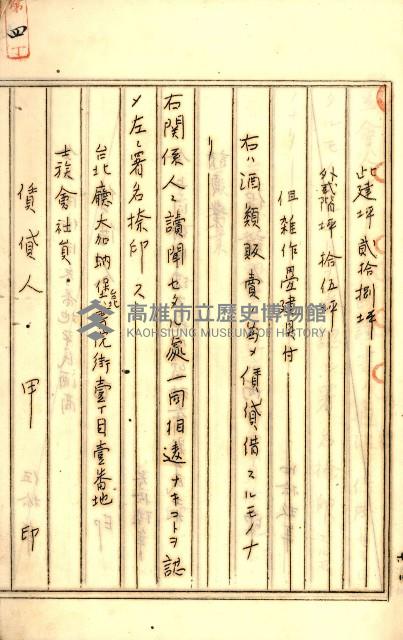 第四丁
此建坪貳拾捌坪
外貳階坪拾伍坪
但雑作畳建具付
右ハ酒類販賣ノ為メ賃貸借スルモノナ
リ
右関係人ニ讀聞セタル處一同相違ナキコトヲ認
メ左ニ署名捺印ス
台北廳大加蚋堡艋舺街壹丁目壹番地
士族會社員
賃貸人 甲 印
高雄市立歷史博物館
KAOHSIUNG MUSEUM OF HISTORY